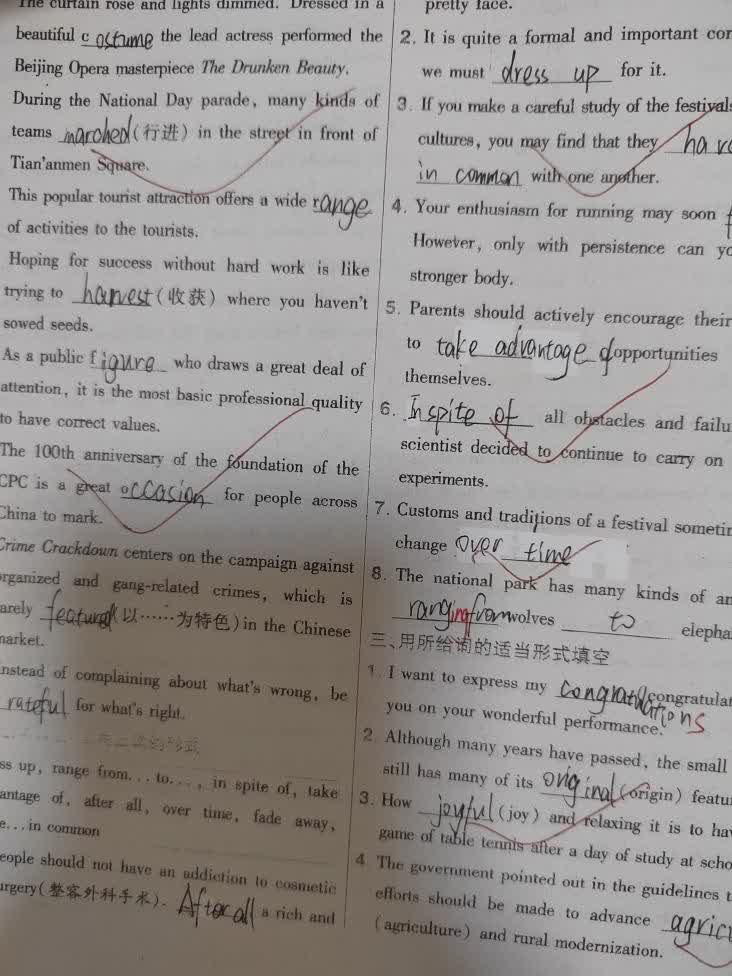 The curtain rose and lights dimmed. Dressed in a
beautiful costume the lead actress performed the
Beijing Opera masterpiece The Drunken Beauty.
During the National Day parade, many kinds of
teams marched(行进) in the street in front of
Tian'anmen Square.
This popular tourist attraction offers a wide range
of activities to the tourists.
Hoping for success without hard work is like
trying to harvest(收获) where you haven't
sowed seeds.
As a public figure who draws a great deal of
attention, it is the most basic professional quality
to have correct values.
The 100th anniversary of the foundation of the
CPC is a great occasion for people across
China to mark.
Crime Crackdown centers on the campaign against
organized and gang-related crimes, which is
arely featured(以……为特色) in the Chinese
market.
nstead of complaining about what's wrong, be
rateful for what's right.
ss up, range from...to..., in spite of, take
antage of, after all, over time, fade away,
e...in common
eople should not have an addiction to cosmetic
urgery(整容外科手术). After all a rich and
pretty face.
2. It is quite a formal and important con
we must dress up for it.
3. If you make a careful study of the festivals
cultures, you may find that they have
in common with one another.
4. Your enthusiasm for running may soon f
However, only with persistence can yo
stronger body.
5. Parents should actively encourage their
to take advantage of opportunities
themselves.
6. In spite of all obstacles and failu
scientist decided to continue to carry on
experiments.
7. Customs and traditions of a festival sometin
change over time
8. The national park has many kinds of an
ranging from wolves to elepha
三、用所给词的适当形式填空
1. I want to express my congratulations(congratulat
you on your wonderful performance.
2. Although many years have passed, the small
still has many of its original(origin) featu
3. How joyful(joy) and relaxing it is to ha
game of table tennis after a day of study at scho
4. The government pointed out in the guidelines t
efforts should be made to advance agricu
(agriculture) and rural modernization.